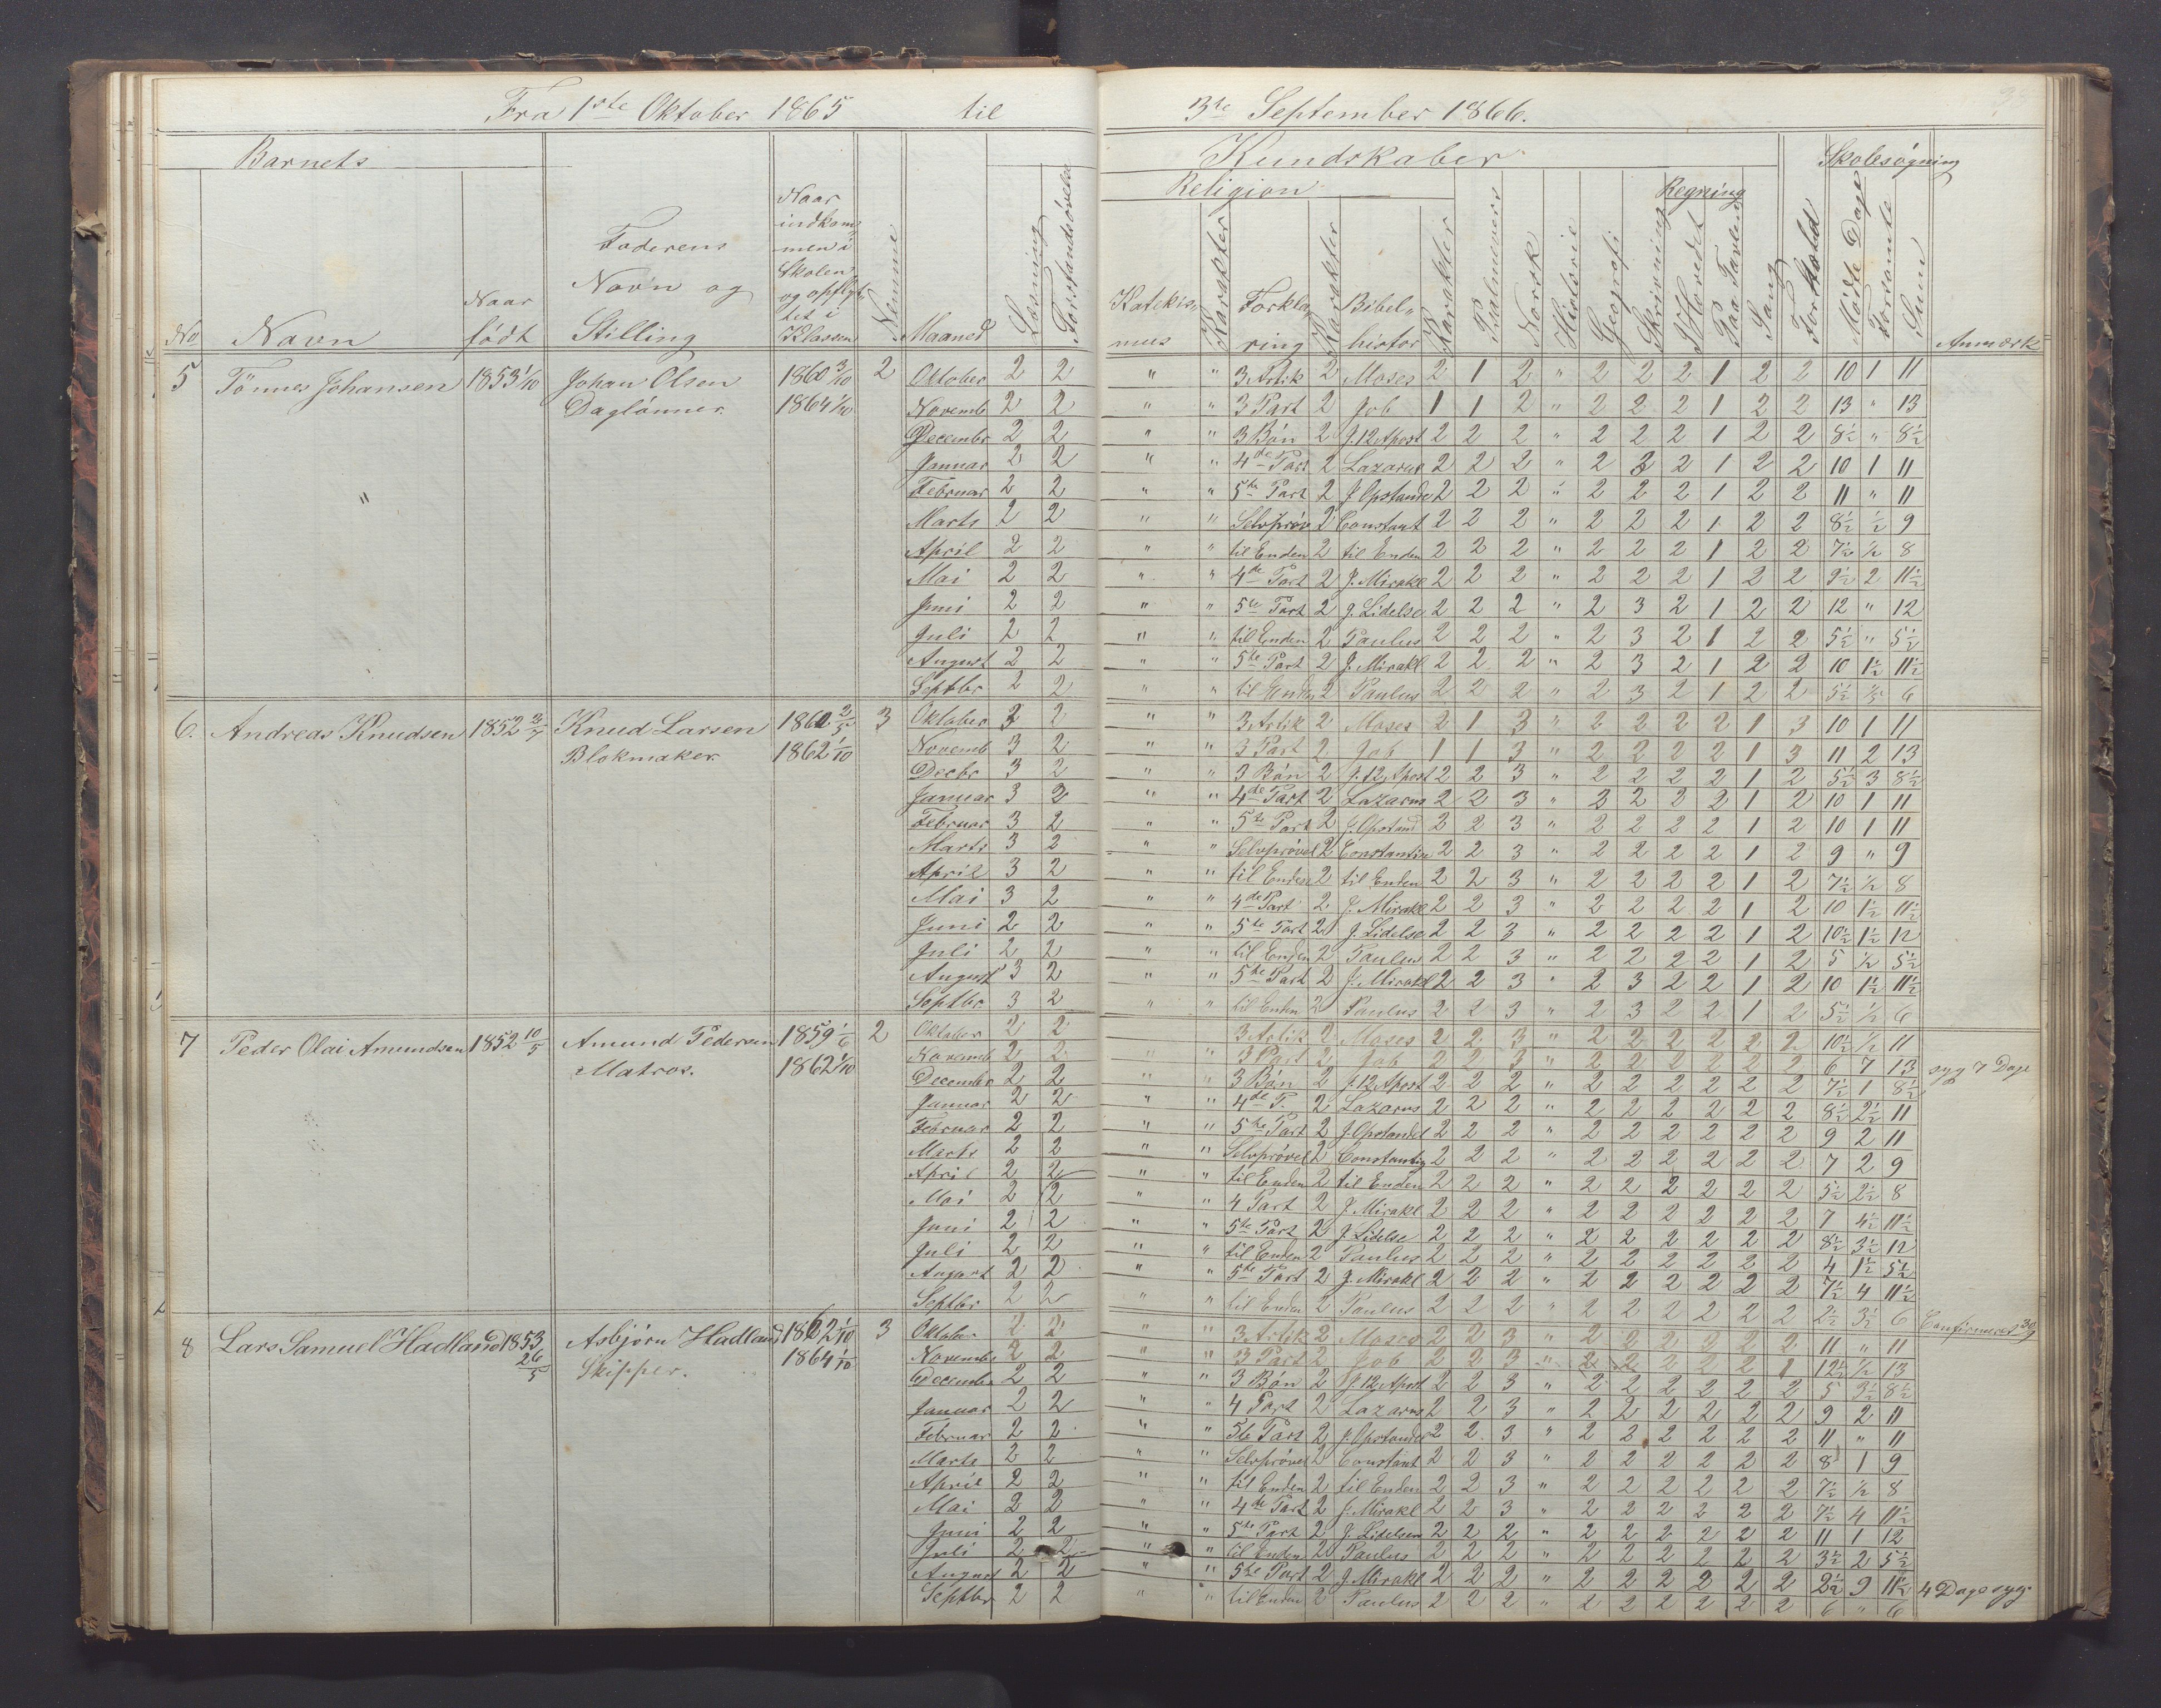 Fra 1ste Oktober 1865 til 3te September 1866.
Barnets Kundskaber Skolesøgning
Religion Regning
No Navn Naar født Faderens Navn og Stilling Naar indkommen i Skolen og opflyttet i Klassen Nemme Maaned Læsning Forstandsøvelse Katekismus Karakter Forklaring Karakter Bibelhistor Karakter Psalmevers Norsk Historie Geografi Skrivning I Hovedet Paa Tavlen Sang Forhold Mødte Dage Forsømte Sum Anmærk
5 Tönnes Johansen 1853 1/10 Johan Olsen 1860 3/10 2 Oktober 2 2 " " 3 Artik 2 Moses 2 1 2 " 2 2 2 1 2 2 10 1 11
Daglönner 1864 1/10 Novemb 2 2 " " 3 Part 2 Job 1 1 2 " 2 2 2 1 2 2 13 " 13
Decembr 2 2 " " 3 Bön 2 J. 12 Apost 2 2 2 " 2 2 2 1 2 2 8½ " 8½
Januar 2 2 " " 4de Part 2 Lazarus 2 2 2 " 2 3 2 1 2 2 10 1 11
" Februar 2 2 " " 5te Part 2 J. Opstande 2 2 2 " 2 2 2 1 2 2 11 " 11
Marts 2 2 " " Selvprøv 2 Constant 2 2 2 " 2 2 2 1 2 2 8½ ½ 9
April 2 2 " " til Enden 2 til Enden 2 2 2 " 2 2 2 1 2 2 7½ ½ 8
Mai 2 2 " " 4de Part 2 J. Mirakl 2 2 2 " 2 2 2 1 2 2 9½ 2 11½
Juni 2 2 " " 5te Part 2 J. Lidelse 2 2 2 " 2 3 2 1 2 2 12 " 12
Juli 2 2 " " til Enden 2 Paulus 2 2 2 " 2 3 2 1 2 2 5½ " 5½
August 2 2 " " 5te Part 2 J. Mirakl 2 2 2 " 2 3 2 1 2 2 10 1½ 11½
Septbr 2 2 " " til Enden 2 Paulus 2 2 2 " 2 3 2 1 2 2 5½ ½ 6
6. Andreas Knudsen 1852 Knud Larsen 3 Oktober 3 2 " " 3 Artik 2 Moses 2 1 3 " 2 2 2 2 1 3 10 1 11
Blokmaker 1862 1/10 Novemb 3 2 " " 3 Part 2 Job 1 1 3 " 2 2 2 2 1 3 11 2 13
Decbr 3 2 " " 3 Bön 2 J. 12 Apost 2 2 3 " 2 2 2 2 1 2 5½ 3 8½
Januar 3 2 " " 4de Part 2 Lazarus 2 2 3 " 2 2 2 2 1 2 10 1 11
Februar 3 2 " " 5te Part 2 J. Opstand 2 2 3 " 2 2 2 2 1 2 10 1 11
Marts 3 2 " " Selvprøvel 2 Constantin 2 2 3 " 2 2 2 2 1 2 9 " 9
April 3 2 " " til Enden 2 til Enden 2 2 3 " 2 2 2 2 1 2 7½ ½ 8
Mai 3 2 " " 4de Part 2 J. Mirakl 2 2 3 " 2 2 2 2 1 2 10 1½ 11½
Juni 2 2 " " 5te Part 2 J. Lidelse 2 2 3 " 2 2 2 2 1 2 10½ 1½ 12
Juli 2 2 " " til Enden 2 Paulus 2 2 3 " 2 2 2 2 1 2 5 ½ 5½
August 3 2 " " 5te Part 2 J. Mirakl 2 2 3 " 2 3 2 2 1 2 10 1½ 11½
Septbr 3 2 " " til Enden 2 Paulus 2 2 3 " 2 3 2 2 1 2 5½ ½ 6
7 Peder Olai Amundsen 1852 10/5 Amund Pedersen 1859 1/6 2 Oktober 2 2 3 Artik 2 Moses 2 2 3 " 2 2 2 2 2 2 10½ ½ 11
Matros. 1862 1/10 Novemb 2 2 " " 3 Part 2 Job 2 2 3 " 2 2 2 2 2 2 6 7 13 syg 7 Dage
Decembr 2 2 " " 3 Bön 2 J. 12 Apost 2 2 2 " 2 2 2 2 2 2 7½ 1 8½
Januar 2 2 " " 4de P. 2 Lazarus 2 2 2 " 2 2 2 2 2 2 8½ 2½ 11
Februar 2 2 " " 5te Part 2 J. Opstandel 2 2 2 " 2 2 2 2 2 2 9 2 11
Marts 2 2 " " Selvprøvel 2 Constantin 2 2 2 " 2 2 2 2 2 2 7 2 9
April 2 2 " " til Enden 2 til Enden 2 2 2 " 2 2 2 2 2 2 5½ 2½ 8
Mai 2 2 " " 4 Part 2 J. Mirakl 2 2 2 " 2 2 2 2 2 2 7 4½ 11½
Juni 2 2 " " 5te Part 2 J. Lidelse 2 2 2 " 2 2 2 2 2 2 8½ 3½ 12
Juli 2 2 " " til Enden 2 Paulus 2 2 2 " 2 2 2 2 2 2 4 1½ 5½
August 2 2 " " 5te Part 2 J. Mirakl 2 2 2 " 2 2 2 2 2 2 7½ 4 11½
Septbr 2 2 " " til Enden 2 Paulus 2 2 2 " 2 2 2 2 2 2 2½ 3½ 6 Confirmeret 30/9
8 Lars Samuel Hadland 1853 Asbjørn Hadland 1862 1/10 3 Oktober 2 2 " " 3 Artik 2 Moses 2 2 3 " 2 2 2 2 2 2 11 " 11
26/5 Skipper. 1864 1/10 Novembr 2 2 " " 3 Part 2 Job 2 2 3 " 2 2 2 2 2 1 12½ ½ 13
Decembr 2 2 " " 3 Bön 2 J. 12 Apost 2 2 3 " 2 2 2 2 2 2 5 3½ 8½
Januar 2 2 " " 4 Part 2 Lazarus 2 2 3 " 2 2 2 2 2 2 9 2 11
Februar 2 2 " " 5te Part 2 J. Opstandel 2 2 3 " 2 2 2 2 2 2 11 " 11
Marts 2 2 " " Selvprøvel 2 Constant 2 2 3 " 2 2 2 2 2 2 8 1 9
April 2 2 " " til Enden 2 til Enden 2 2 3 " 2 2 2 2 2 2 7½ ½ 8
Mai 2 2 " " 4de Part 2 J. Mirakl 2 2 3 " 2 2 2 2 2 2 7½ 4 11½
Juni 2 2 " " 5te Part 2 J. Lidelsen 2 2 2 " 2 2 2 2 2 2 11 1 12
Juli 2 2 " " til Enden 2 Paulus 2 2 2 " 2 2 2 2 2 2 3½ 2 5½
August 2 2 " " 5te Part 2 J. Mirakl 2 2 2 " 2 2 2 2 2 2 2½ 9 11½ 4 Dage syg
Septbr 2 2 " " til Enden 2 Paulus 2 2 2 " 2 2 2 2 2 2 6 " 6